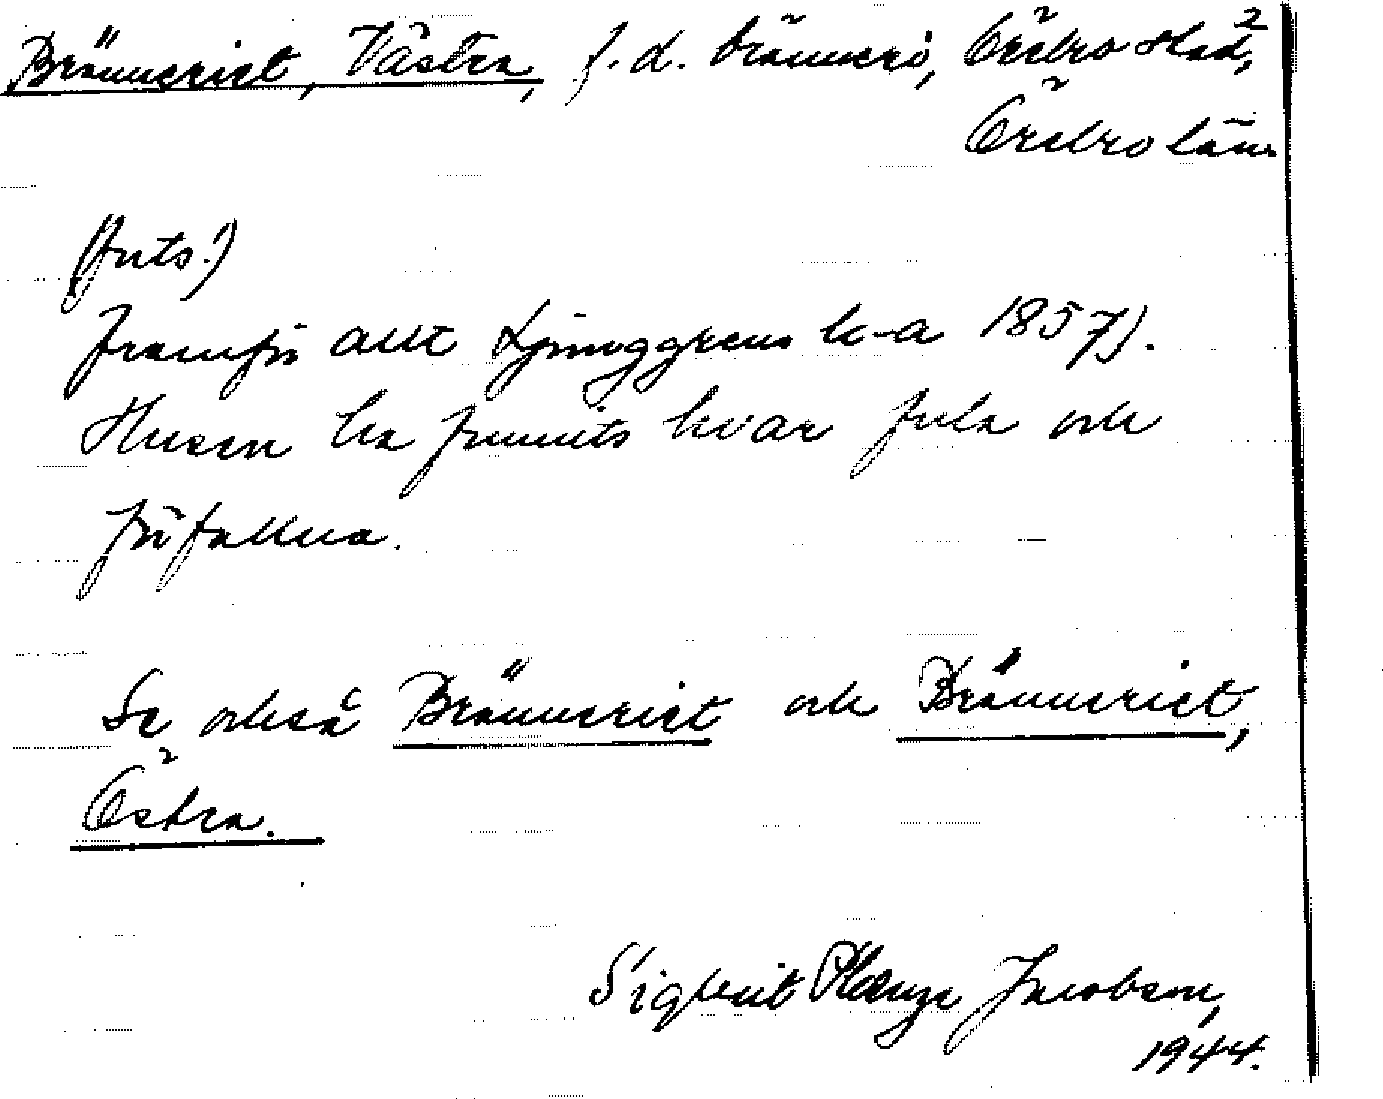 Bränneriet, Västra, f.d. bränneri, Örebro stad, 2
Örebro län
(forts.)
framför allt Ljunggrens k-a 1857).
Husen ha funnits kvar fula och
förfallna.
Se också Bränneriet och Bränneriet,
Östra.
Sigbrit Plænge Jacobson,
1944.